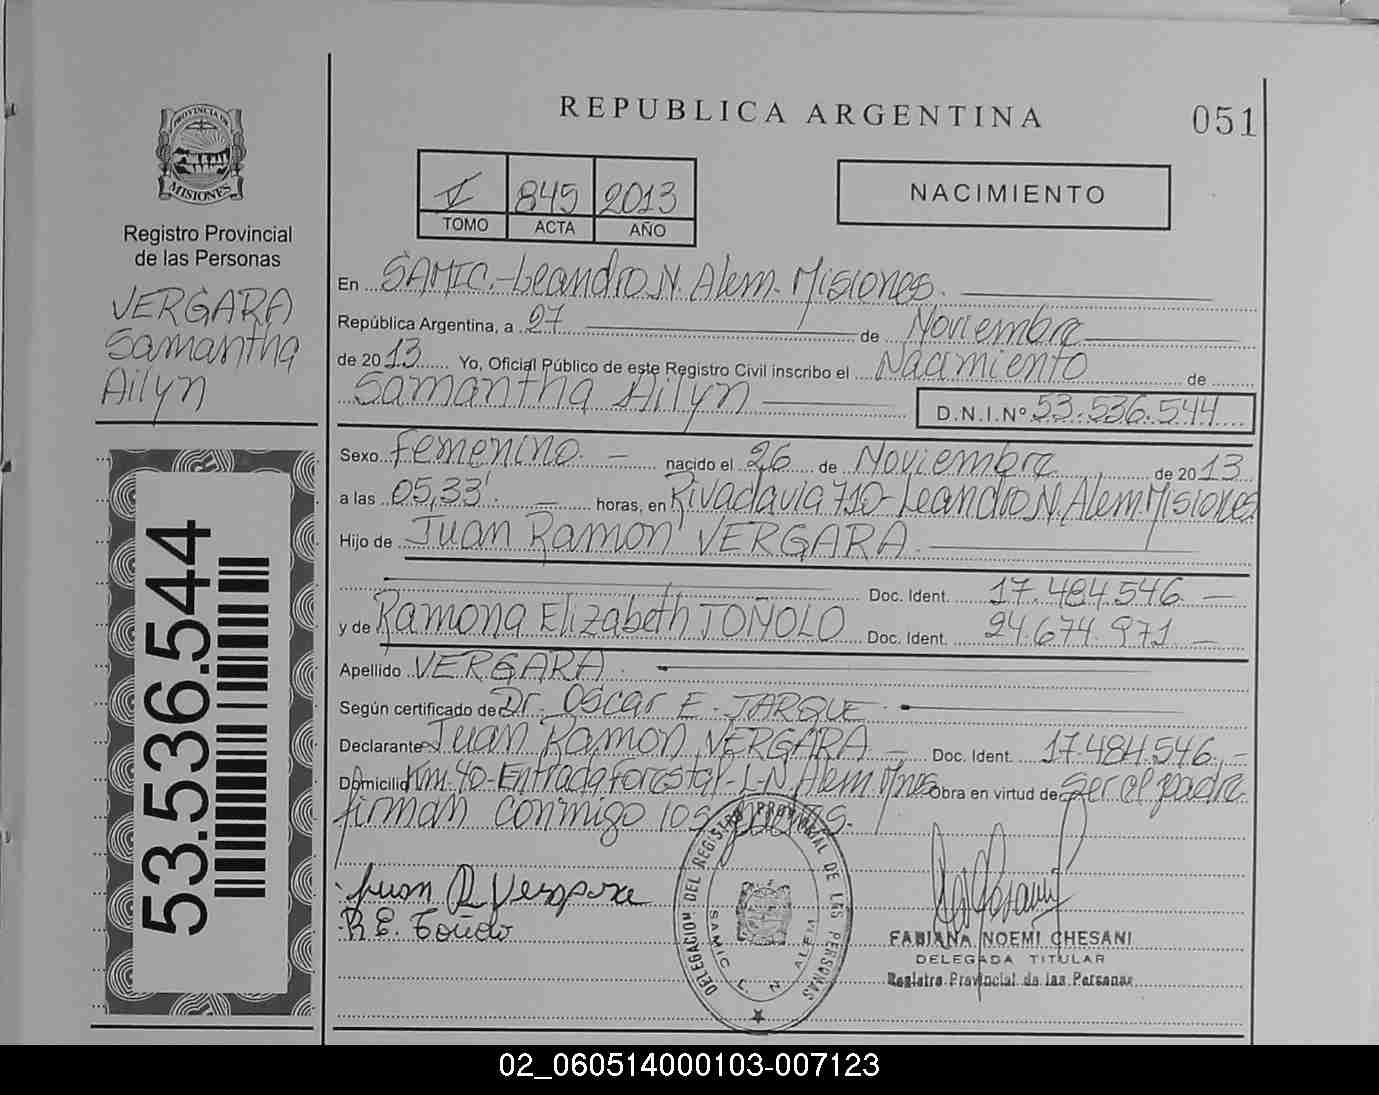 REPUBLICA ARGENTINA
051
PROVINCIA DE
MISIONES
Registro Provincial
de las Personas
VERGARA
Samantha
Ailyn
53.536.544
V 845 2013
TOMO ACTA AÑO
NACIMIENTO
En SAMIC.-Leandro N. Alem. Misiones.
República Argentina, a 27 de Noviembre
de 2013 Yo, Oficial Público de este Registro Civil inscribo el Nacimiento de
Samantha Ailyn D.N.I.Nº 53.536.544
Sexo Femenino. nacido el 26 de Noviembre de 2013
a las 05,33'. horas, en Rivadavia 710-Leandro N. Alem. Misiones
Hijo de Juan Ramon VERGARA
Doc. Ident. 17.484.546
y de Ramona Elizabeth TOÑOLO Doc. Ident. 24.674.971
Apellido VERGARA.
Según certificado de Dr. Oscar E. JARQUE.
Declarante Juan Ramon VERGARA Doc. Ident. 17.484.546.-
Domicilio Km.40-Entrada Forestal-L-N.Alem Mnes Obra en virtud de Ser el padre
firman conmigo los
Juan R Vergara
R E. Toñolo
DELEGACION DEL REGISTRO PROVINCIAL DE LAS PERSONAS
SAMIC L. N. ALEM
FABIANA NOEMI CHESANI
DELEGADA TITULAR
Registro Provincial de las Personas
02_060514000103-007123